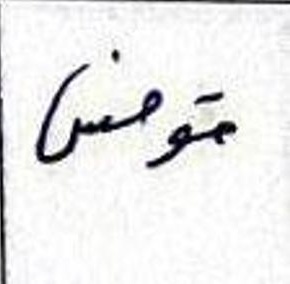 متوحش